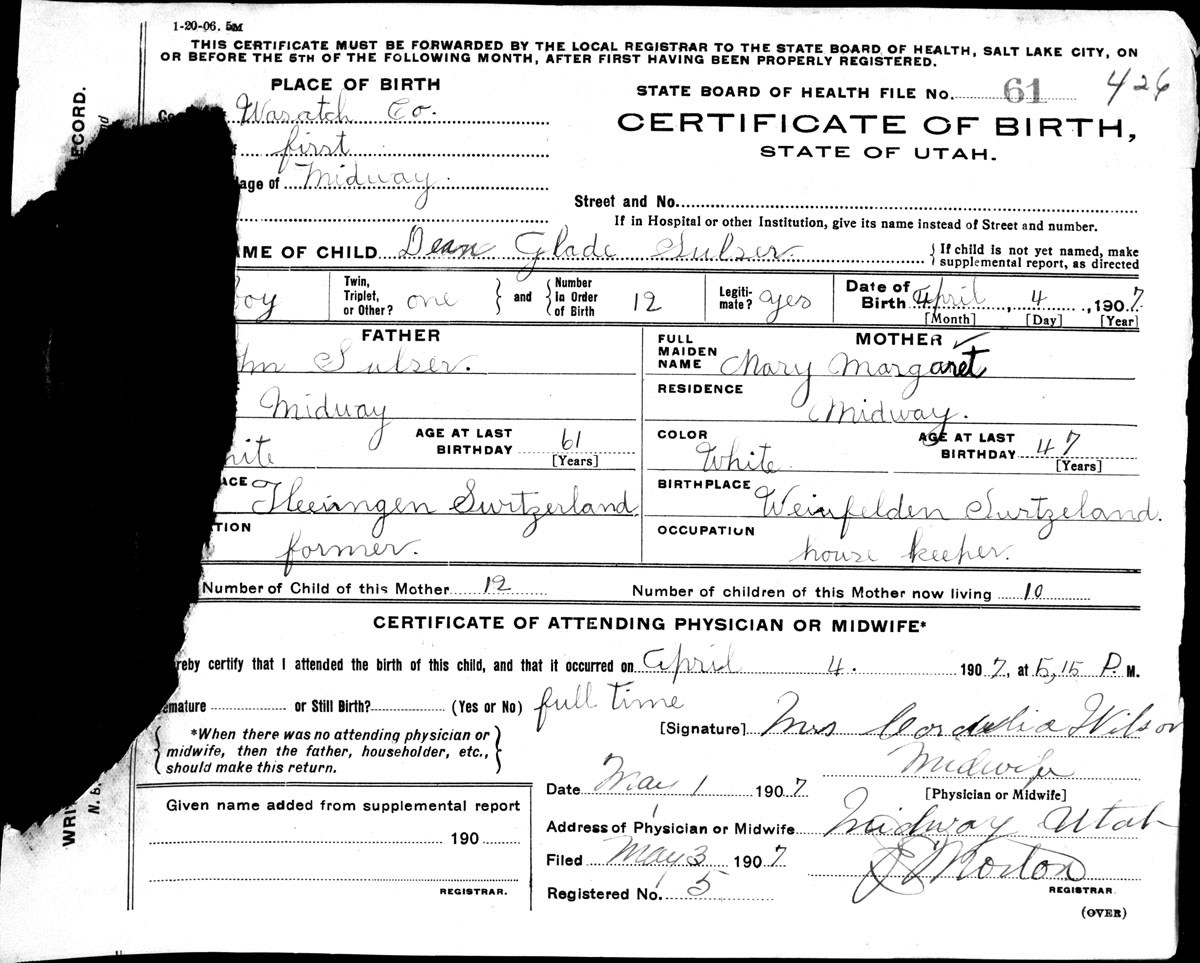 1-20-06. 5M
THIS CERTIFICATE MUST BE FORWARDED BY THE LOCAL REGISTRAR TO THE STATE BOARD OF HEALTH, SALT LAKE CITY, ON
OR BEFORE THE 5TH OF THE FOLLOWING MONTH, AFTER FIRST HAVING BEEN PROPERLY REGISTERED.
PLACE OF BIRTH
STATE BOARD OF HEALTH FILE No. 61 426
Wasatch Co.
CERTIFICATE OF BIRTH,
first
STATE OF UTAH.
age of Midway.
Street and No.
If in Hospital or other Institution, give its name instead of Street and number.
ME OF CHILD Dean Glade Sulser.
{ If child is not yet named, make
supplemental report, as directed
Boy
Twin,
Triplet,
or Other? one } and { Number
in Order
of Birth 12
Legiti-
mate? yes
Date of
Birth April, 4, 1907
[Month] [Day] [Year]
FATHER
hn Sulser.
FULL
MAIDEN
NAME
MOTHER
Mary Margaret
Midway
RESIDENCE
Midway.
hite
AGE AT LAST
BIRTHDAY 61
[Years]
COLOR
White
AGE AT LAST
BIRTHDAY 47
[Years]
ACE Switzerland
BIRTHPLACE Weinfelden Switzeland.
TION
former.
OCCUPATION
house keeper.
Number of Child of this Mother 12
Number of children of this Mother now living 10
CERTIFICATE OF ATTENDING PHYSICIAN OR MIDWIFE*
reby certify that I attended the birth of this child, and that it occurred on April 4. 1907, at 5,15 P. M.
emature or Still Birth? (Yes or No) full time
[Signature] Mrs Cordelia Wilson
{ *When there was no attending physician or
midwife, then the father, householder, etc.,
should make this return. }
Midwife
[Physician or Midwife]
Date May 1 1907
Address of Physician or Midwife Midway Utah
Given name added from supplemental report
190
REGISTRAR.
Filed May 3 1907
Morton
REGISTRAR
Registered No. 5
(OVER)
ECORD.
WRI
N. B.